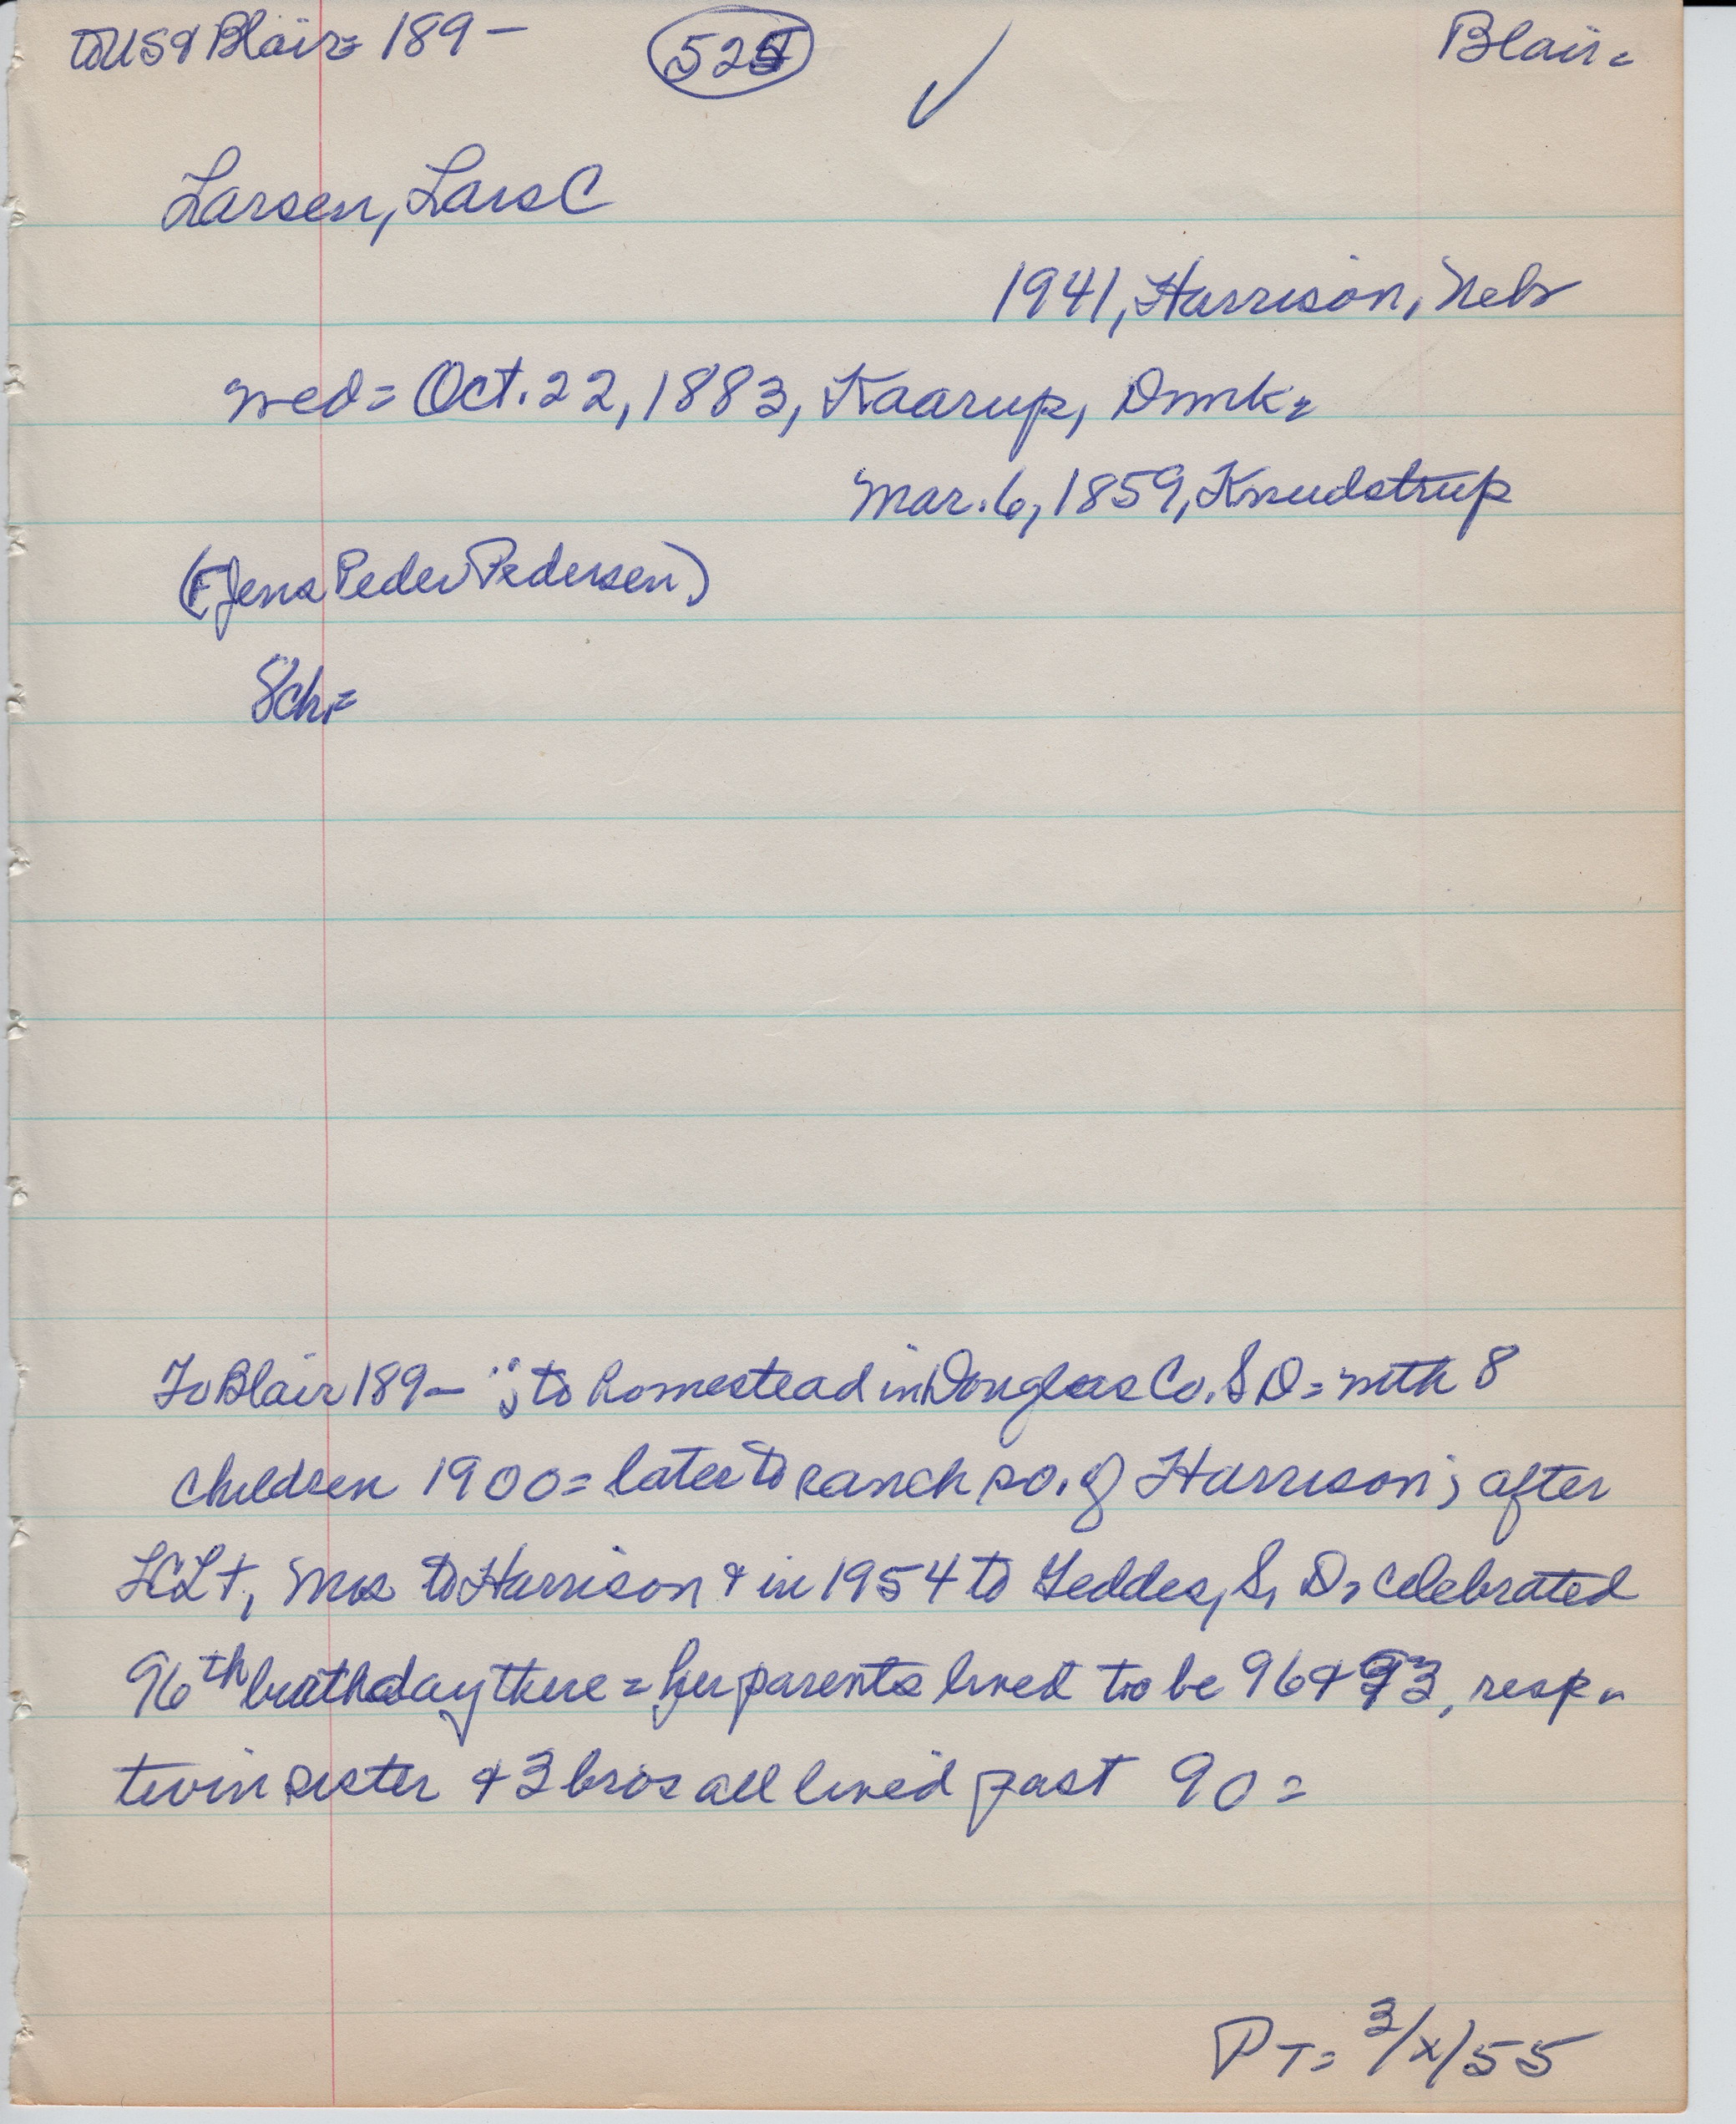 to US & Blair= 189- 525 ✓ Blair=
Larsen, Lars C
1941, Harrison, Nebr
med= Oct. 22, 1883, Kaarup, Dnmk=
Mar. 6, 1859, Knudstrup
(F Jens Peder Pedersen)
8ch.=
To Blair 189- ; to homestead in Douglas Co. S D = with 8
children 1900 = later to ranch so. of Harrison; after
LCL †, Mrs to Harrison & in 1954 to Geddes, S, D, celebrated
96th birthday there = her parents lived to be 96 & 93, resp.
twin sister & 3 bros all lived past 90 =
PT= 3/x/55